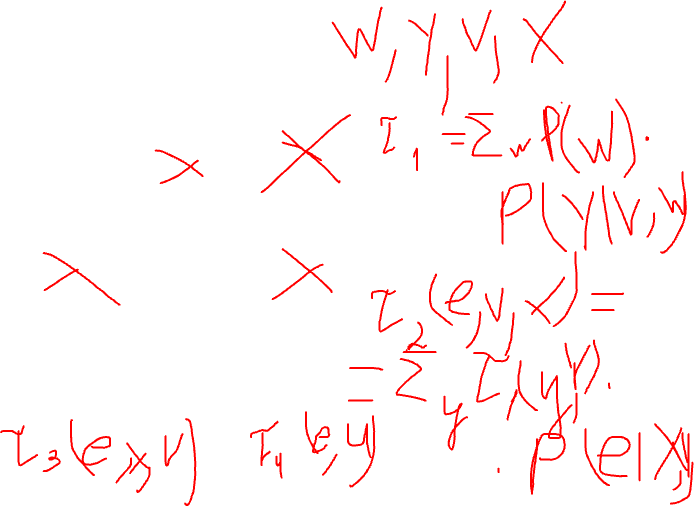 W, Y, V, X
τ₁ = Σ_w P(w) ·
P(Y|V,W)
τ₂(e,v,x) =
= Σ_y τ₁(y,v) ·
· P(e|x,y
τ₃(e,x,v) τ₄(e,y)